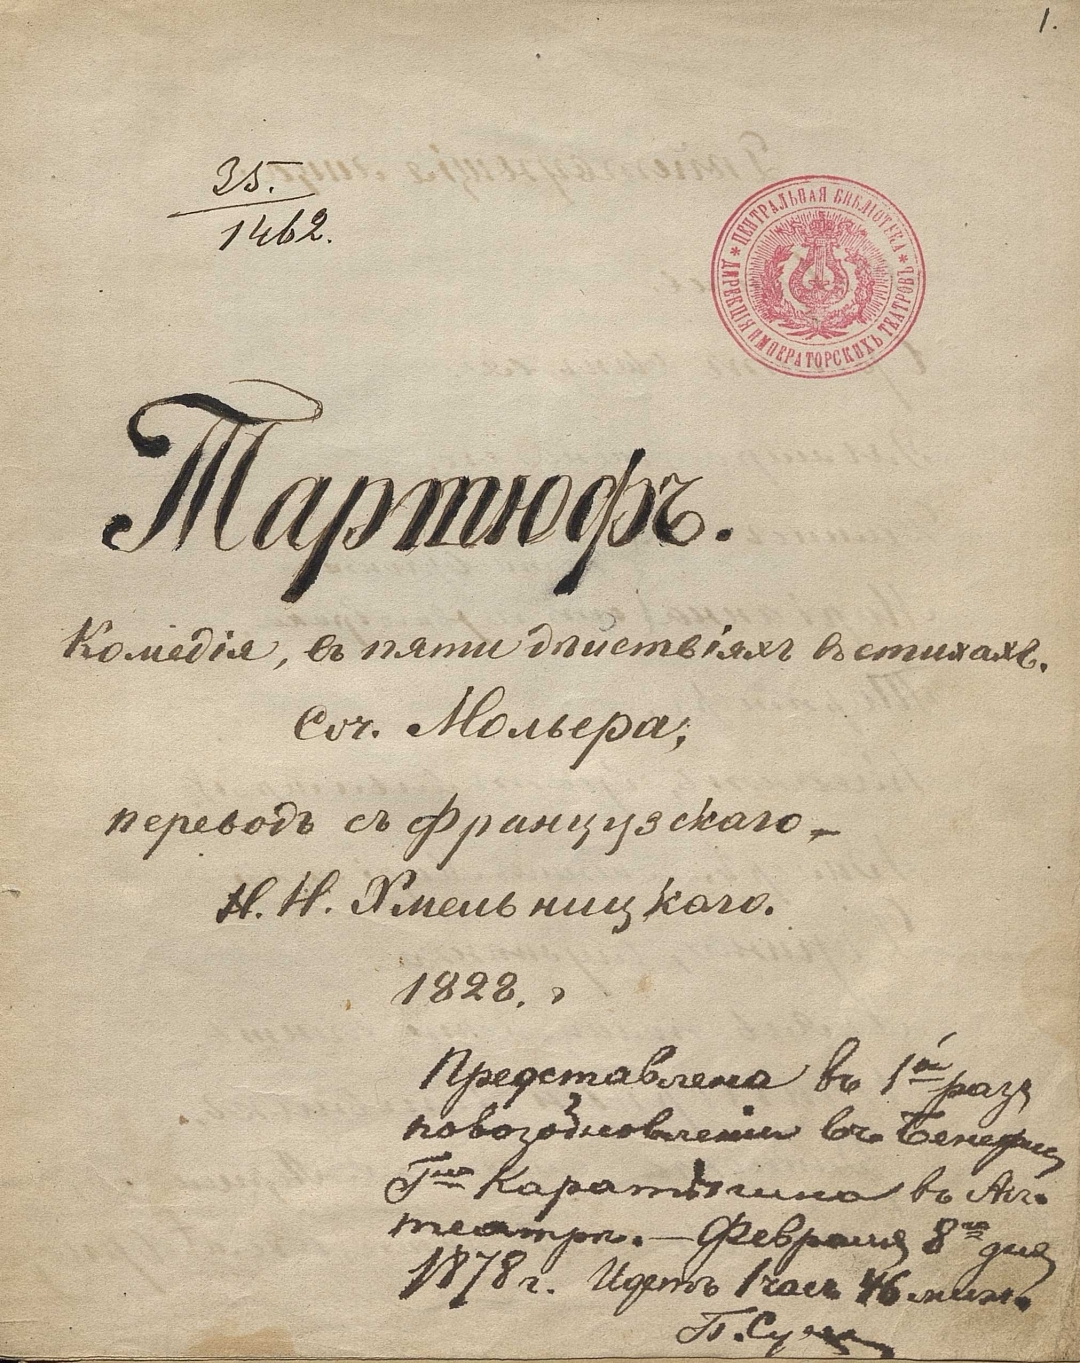 1.
35.
1462.
* ЦЕНТРАЛЬНАЯ БИБЛІОТЕКА *
ДИРЕКЦІЯ ИМПЕРАТОРСКИХЪ ТЕАТРОВЪ
Тартюфъ.
Комедія, въ пяти дѣйствіяхъ въ стихахъ.
Соч. Мольера;
переводъ съ французскаго
Н. Н. Хмельницкаго.
1828.
Представлена въ 1й разъ
по возобновленіи въ Бенефисъ
Гна Каратыгина въ Ал.
театрѣ. — Февраля 8го дня
1878 г. Идетъ 1 часъ 46 мин.